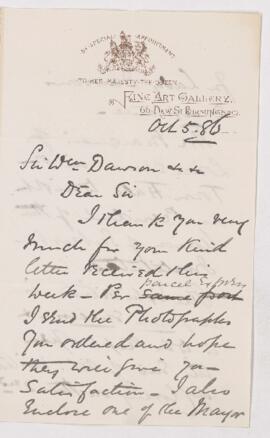 BY SPECIAL APPOINTMENT
TO HER MAJESTY THE QUEEN
FINE ART GALLERY.
66 NEW ST BIRMINGHAM.
Oct 5. 86
Sir Wm Dawson &c &c
Dear Sir
I thank you very
much for your kind
letter received this
week - Per same post
parcel express
I send the Photographs
you ordered and hope
they will give you
satisfaction - I also
enclose one of the Mayor